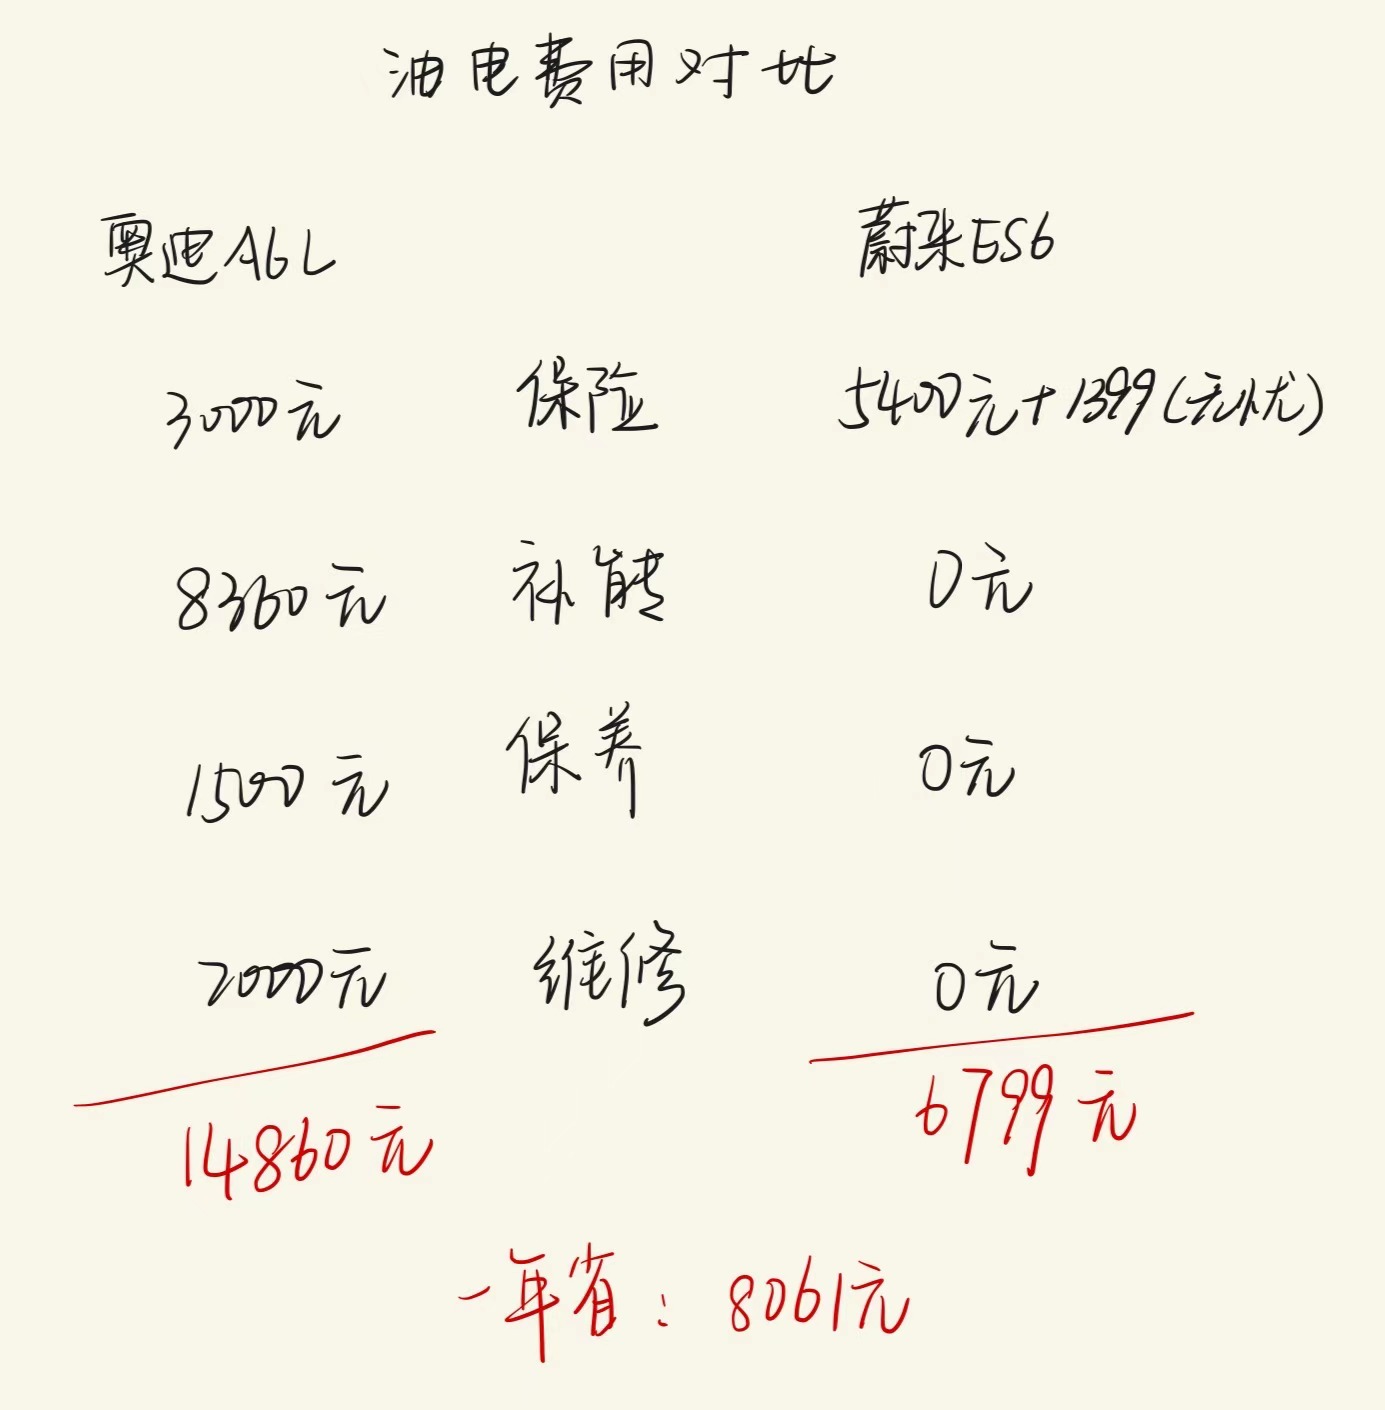 油电费用对比
奥迪A6L 蔚来ES6
3000元 保险 5400元+1399(无忧)
8360元 补能 0元
1500元 保养 0元
2000元 维修 0元
14860元 6799元
一年省：8061元